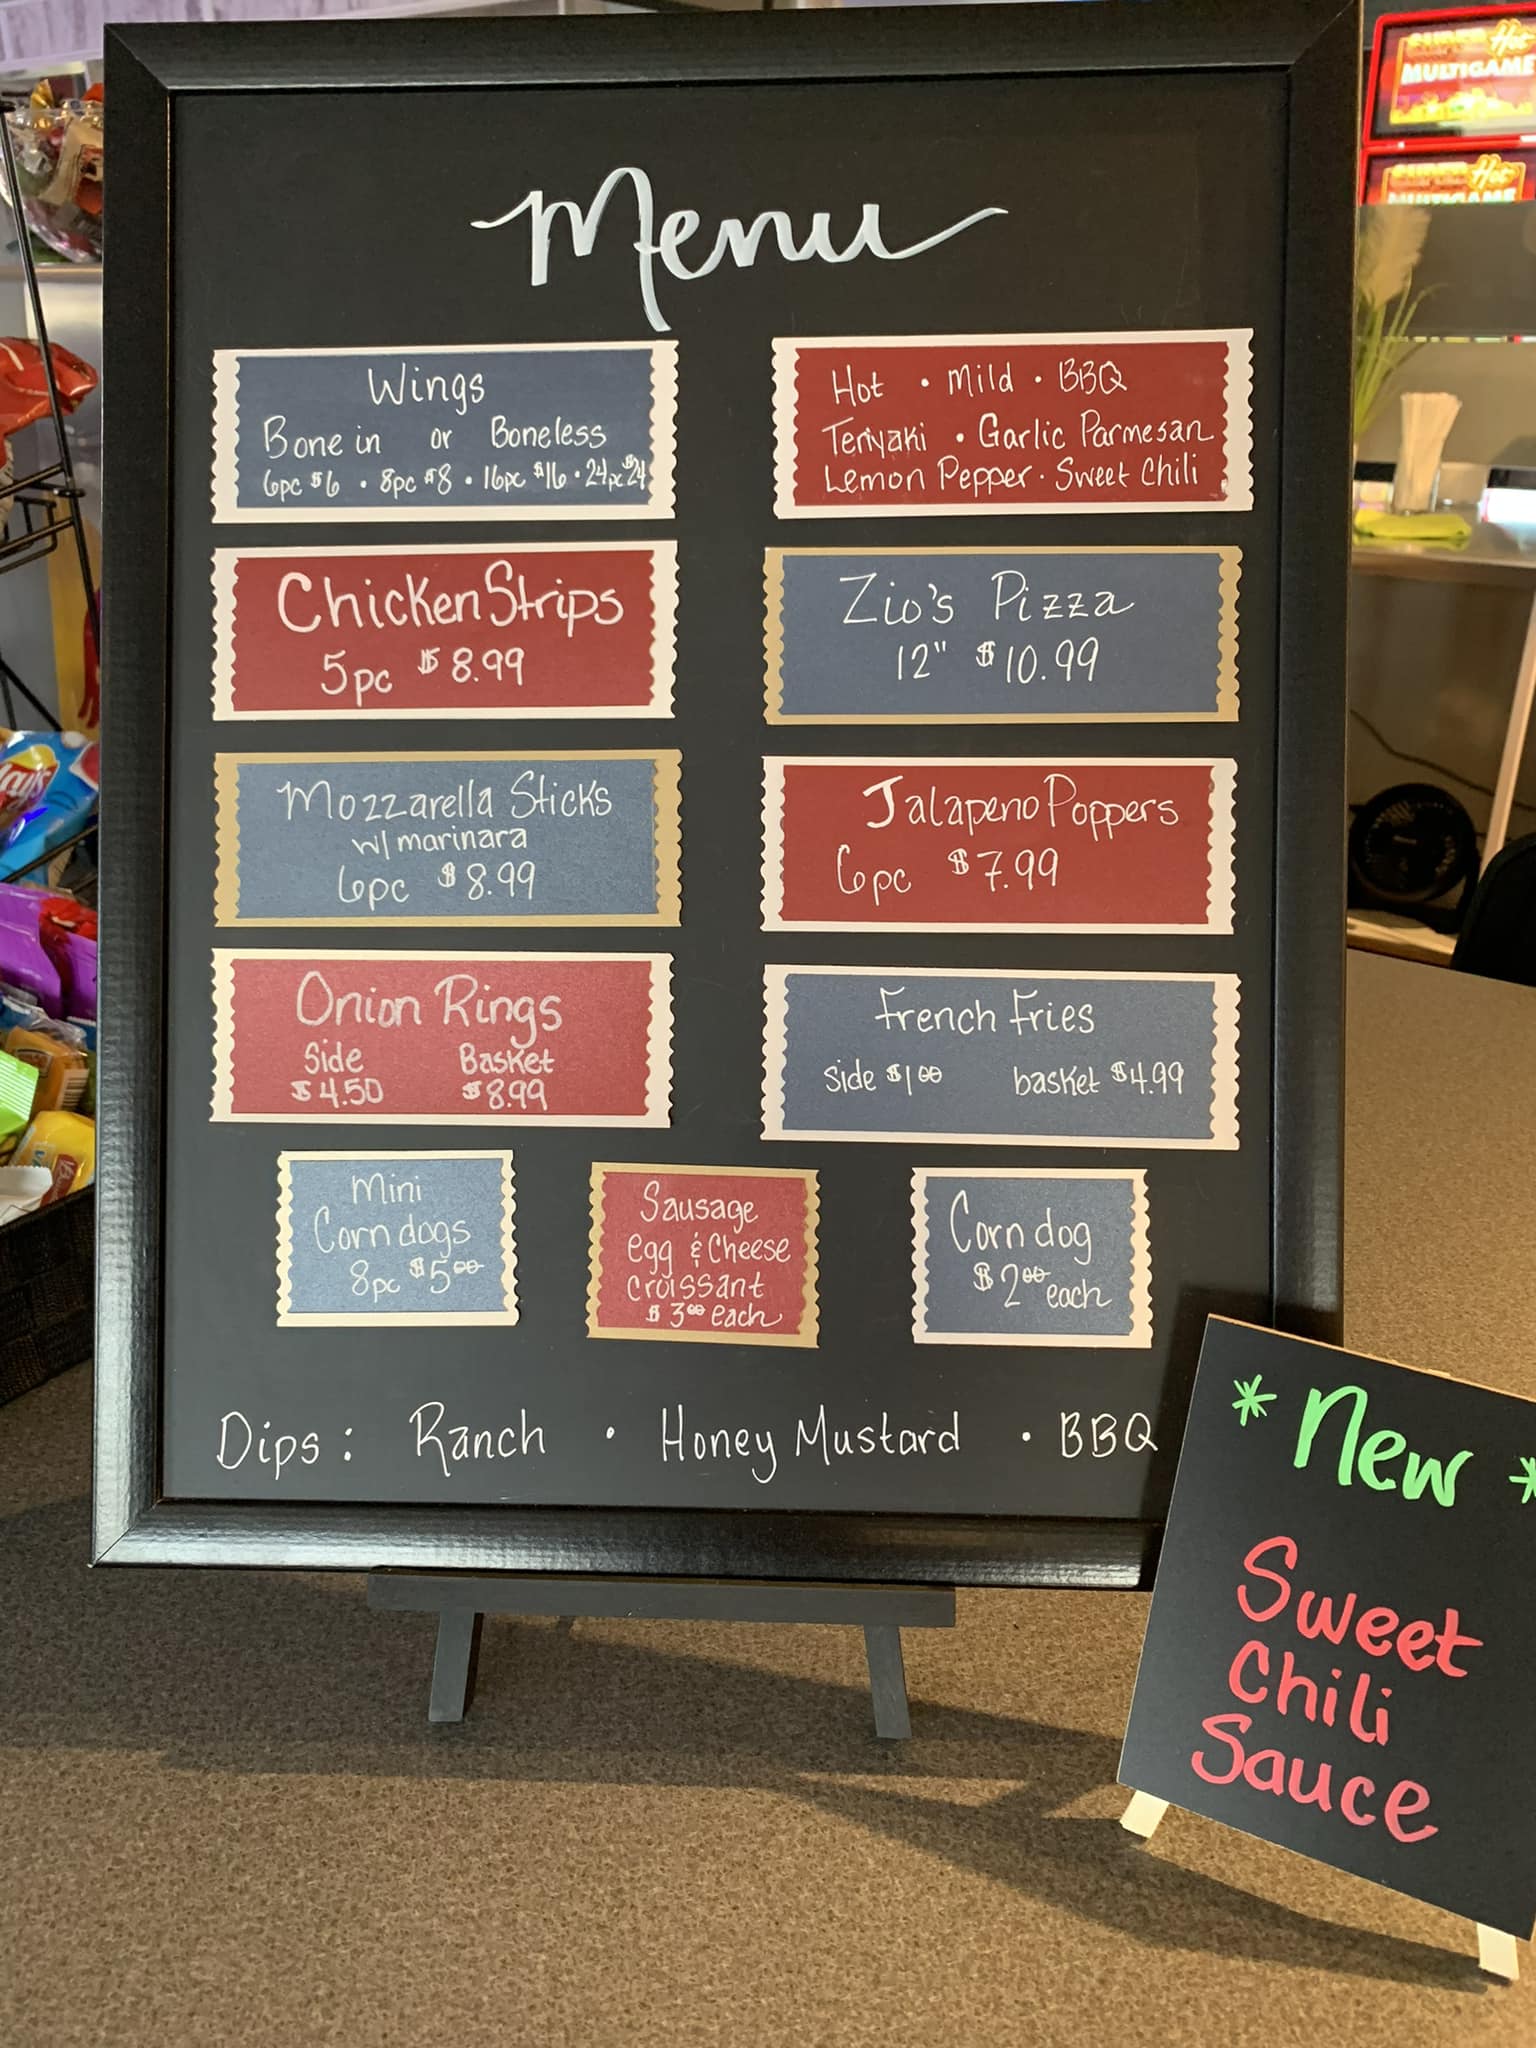 Menu
Wings
Bone in or Boneless
6pc $6 · 8pc $8 · 16pc $16 · 24pc $24
Hot · Mild · BBQ
Teriyaki · Garlic Parmesan
Lemon Pepper · Sweet Chili
Chicken Strips
5pc $8.99
Zio's Pizza
12" $10.99
Mozzarella Sticks
w/ marinara
6pc $8.99
Jalapeno Poppers
6pc $7.99
Onion Rings
Side Basket
$4.50 $8.99
French Fries
side $1.00 basket $4.99
Mini
Corn dogs
8pc $5.00
Sausage
egg & Cheese
croissant
$3.00 each
Corn dog
$2.00 each
Dips: Ranch · Honey Mustard · BBQ
* New *
Sweet
Chili
Sauce
SUPER Hot
MULTIGAME
SUPER Hot
MULTIGAME
Lay's